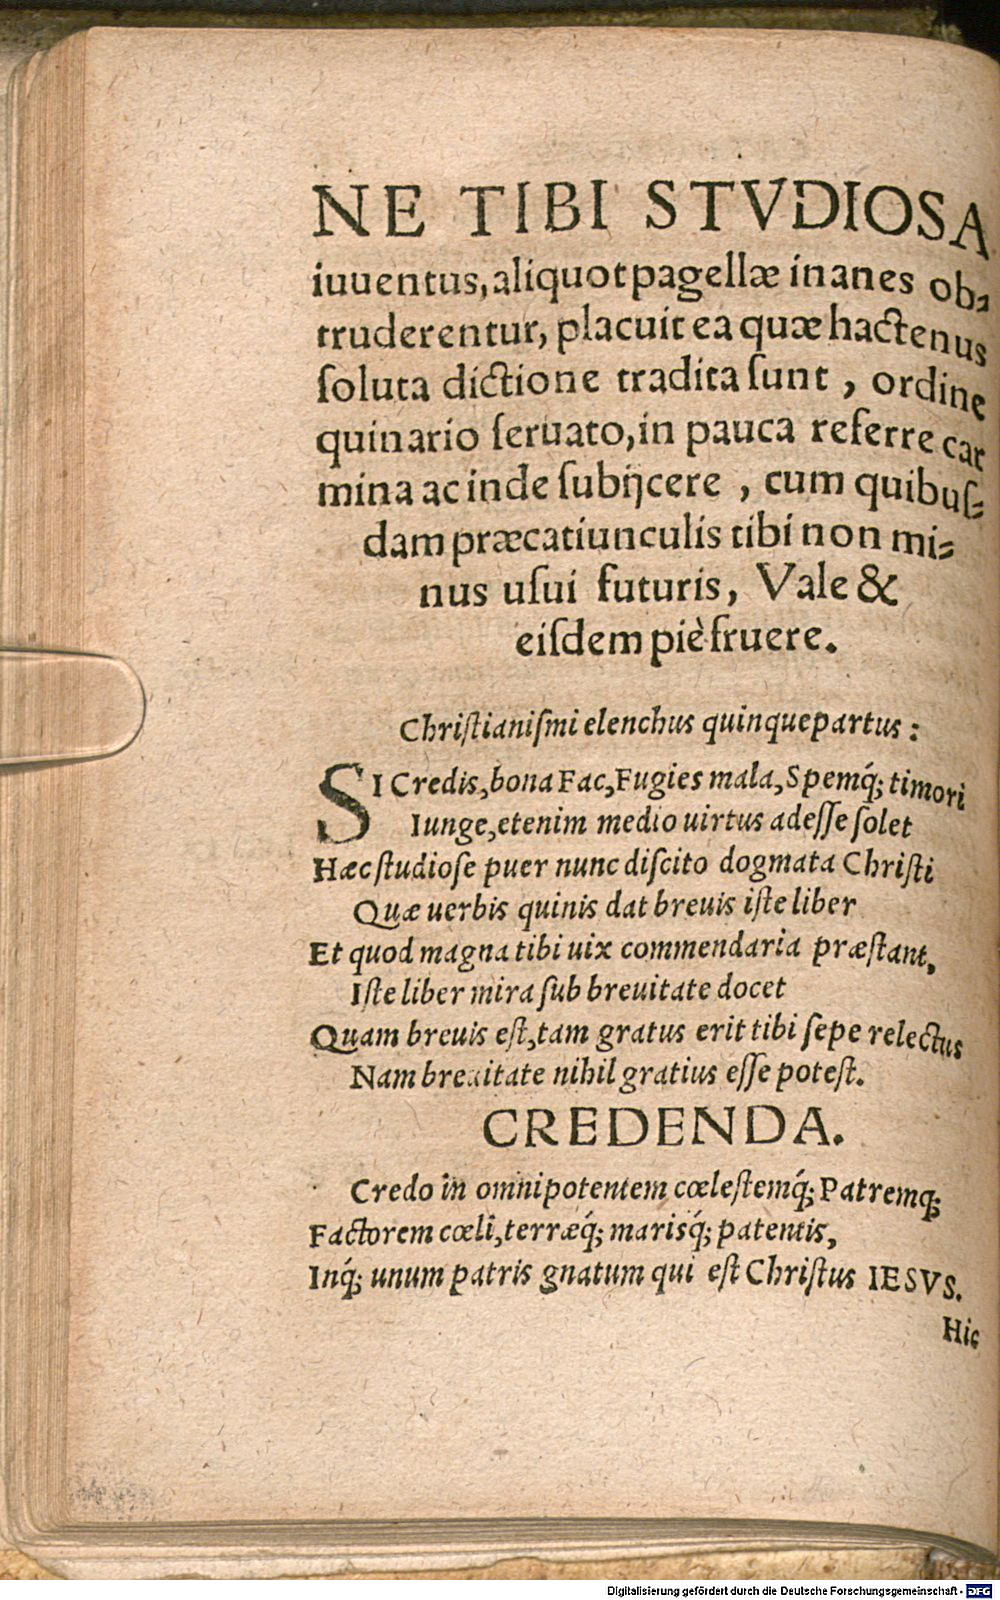 NE TIBI STVDIOSA
iuuentus, aliquot pagellæ inanes ob⸗
truderentur, placuit ea quæ hactenus
ſoluta dictione tradita ſunt, ordine
quinario ſeruato, in pauca referre car
mina ac inde ſubijcere, cum quibuſ⸗
dam præcatiunculis tibi non mi⸗
nus uſui futuris, Vale &
eiſdem piè fruere.
Chriſtianiſmi elenchus quinquepartus:
SI Credis, bona Fac, Fugies mala, Spemq́; timori
Iunge, etenim medio uirtus adeſſe ſolet
Hæc ſtudioſe puer nunc diſcito dogmata Chriſti
Quæ uerbis quinis dat breuis iſte liber
Et quod magna tibi uix commendaria præſtant,
Iſte liber mira ſub breuitate docet
Quam breuis eſt, tam gratus erit tibi ſepe relectus
Nam breuitate nihil gratius eſſe poteſt.
CREDENDA.
Credo in omnipotentem cœleſtemq́; Patremq;
Factorem cœli, terræq́; marisq́; patentis,
Inq́; unum patris gnatum qui eſt Chriſtus IESVS.
Hic
Digitalisierung gefördert durch die Deutsche Forschungsgemeinschaft - DFG